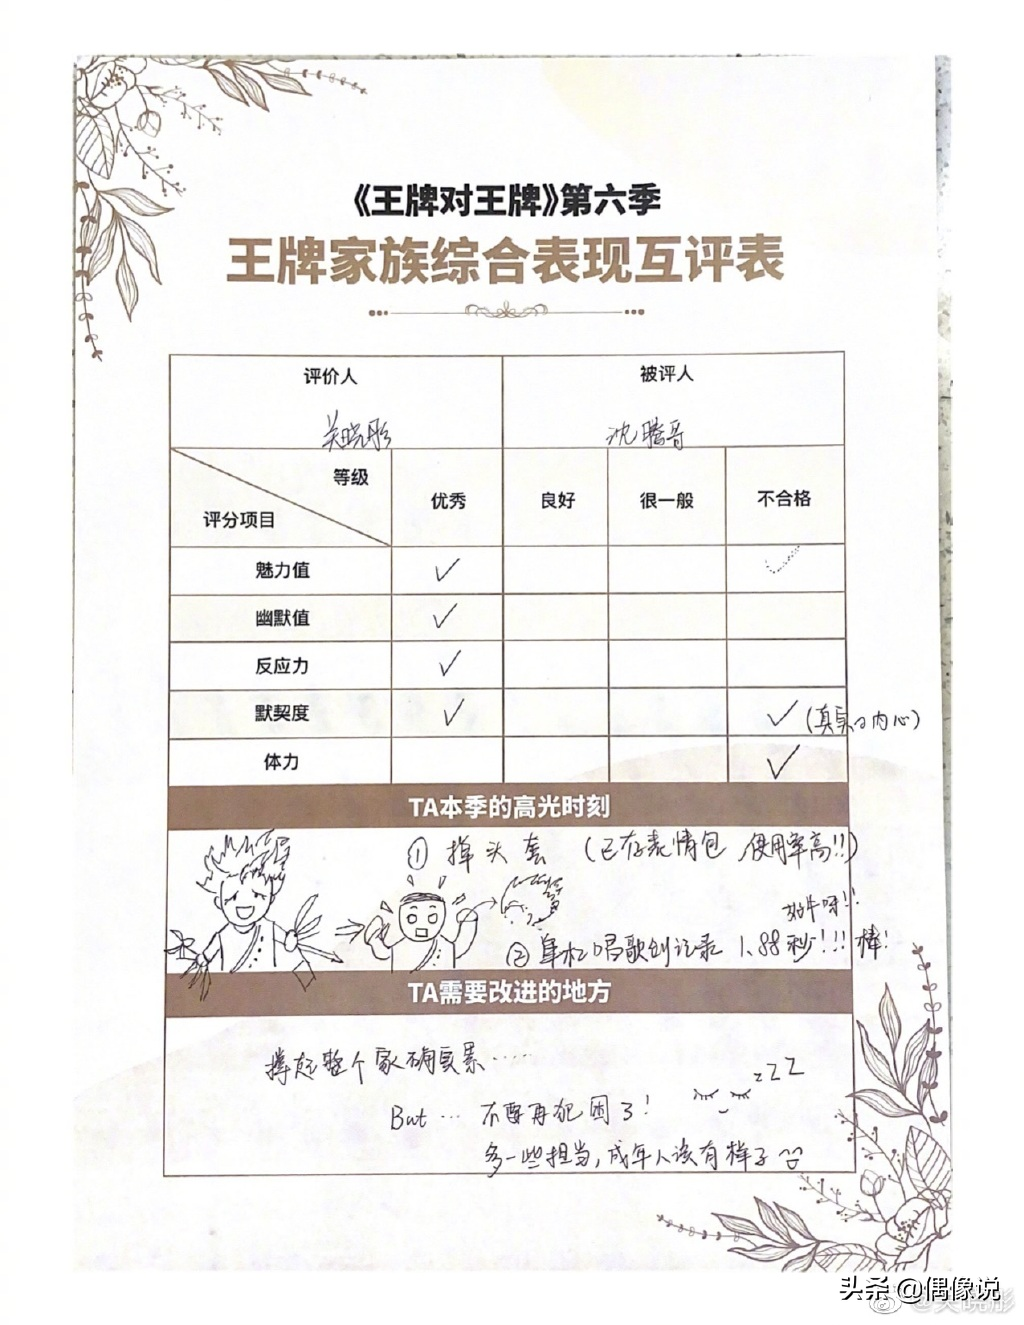 《王牌对王牌》第六季
王牌家族综合表现互评表
评价人 被评人
关晓彤 沈腾哥
等级
评分项目
优秀 良好 很一般 不合格
魅力值 ✓ ✓
幽默值 ✓
反应力 ✓
默契度 ✓ ✓ (真实の内心)
体力 ✓
TA本季的高光时刻
① 掉头套 (已存表情包,使用率高!!)
好牛呀!!
② 单杠唱歌创记录 1.88秒!!! 棒!
TA需要改进的地方
撑起整个家确实累……
zZZ
But … 不要再犯困了!
多一些担当,成年人该有样子
头条 @偶像说
@关晓彤